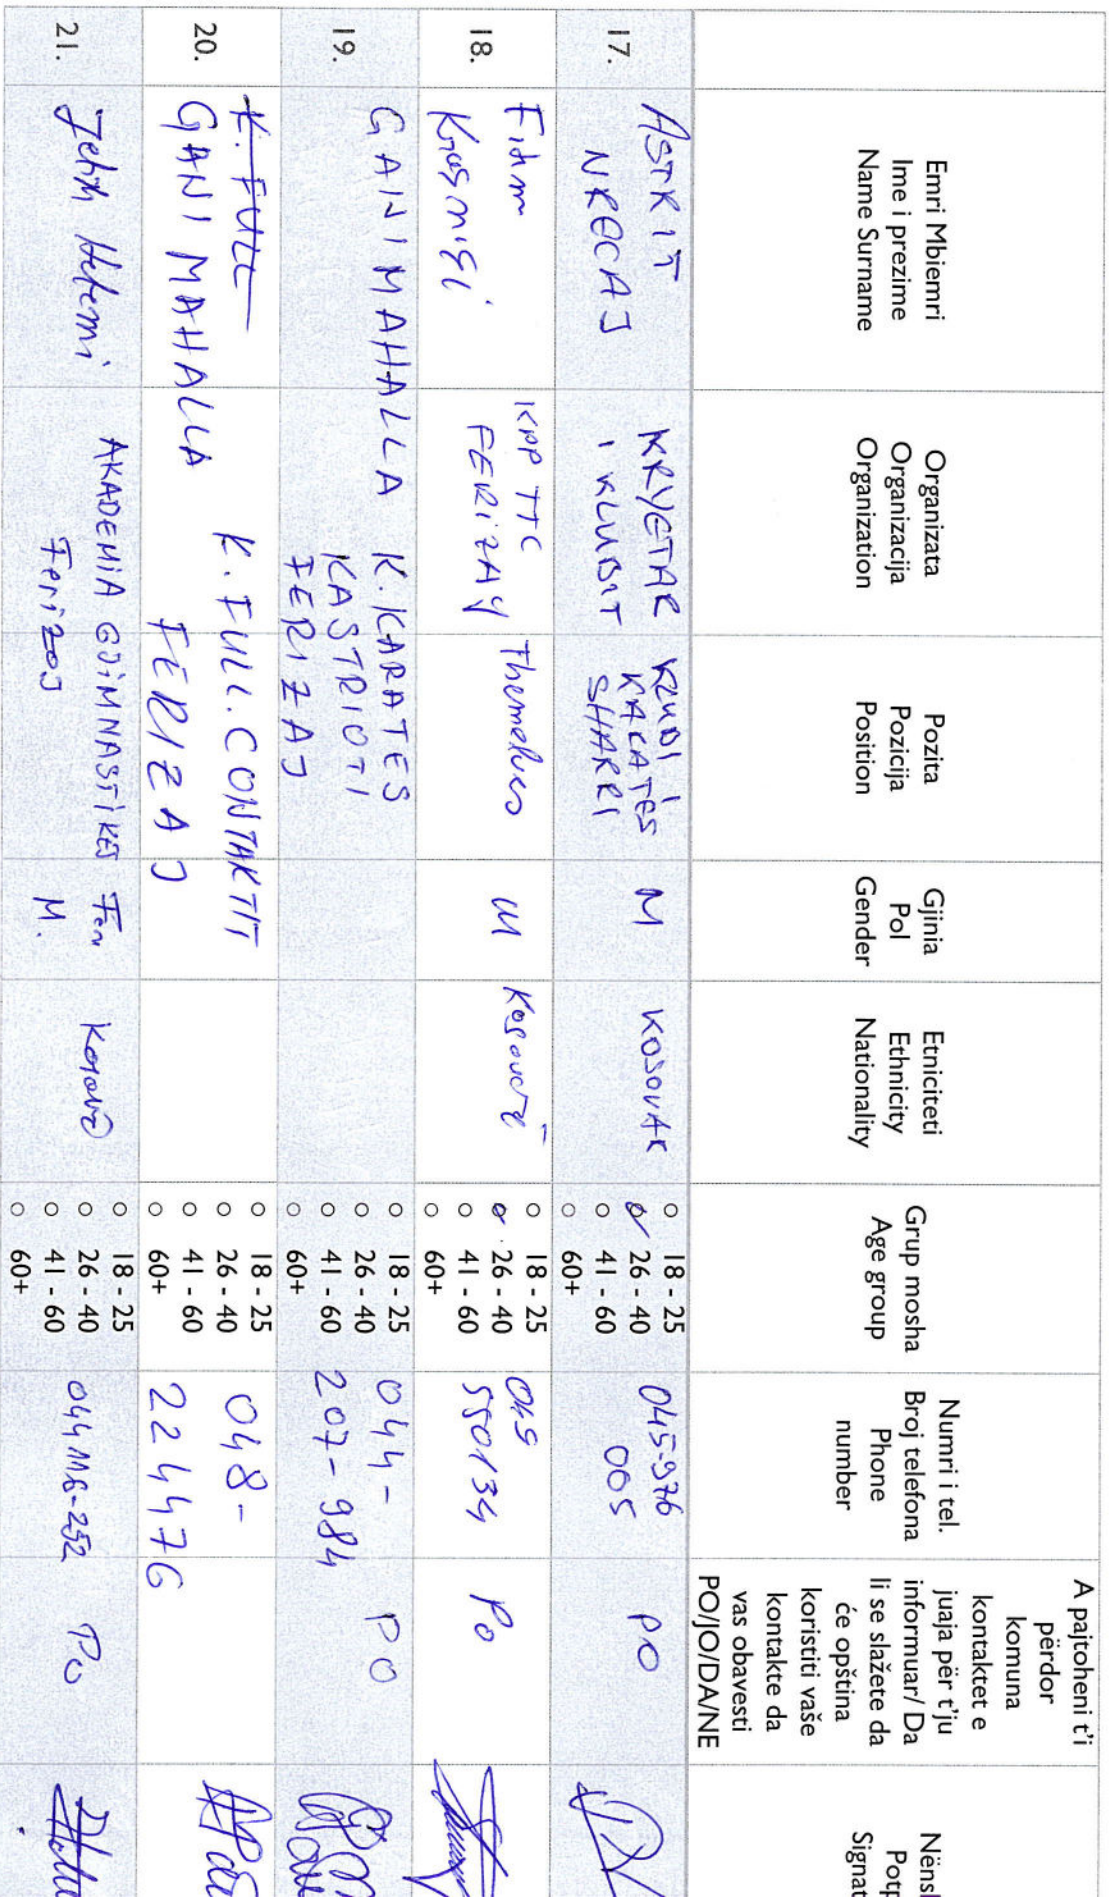 Emri Mbiemri
Ime i prezime
Name Surname
Organizata
Organizacija
Organization
Pozita
Pozicija
Position
Gjinia
Pol
Gender
Etniciteti
Ethnicity
Nationality
Grup mosha
Age group
Numri i tel.
Broj telefona
Phone
number
A pajtoheni t'i
përdor
komuna
kontaktet e
juaja për t'ju
informuar/ Da
li se slažete da
će opština
koristiti vaše
kontakte da
vas obavesti
PO/JO/DA/NE
Nënsh
Potp
Signat
17.
ASTRIT
NRECAJ
KRYETAR
I KLUBIT
KLUBI I
KARATES
SHARRI
M
KOSOVAR
18 - 25
26 - 40
41 - 60
60+
045-976
005
PO
18.
Krasniqi
KPP TTC
FERIZAY
Themelues
M
Kosovar
18 - 25
26 - 40
41 - 60
60+
045
550134
Po
19.
GANI MAHALLA
K. KARATES
KASTRIOTI
FERIZAJ
18 - 25
26 - 40
41 - 60
60+
044-
207-984
PO
20.
K. FULL
GANI MAHALLA
K. FULL. CONTAKTIT
FERIZAJ
18 - 25
26 - 40
41 - 60
60+
048-
224476
21.
Jeton Hetemi
AKADEMIA GJIMNASTIKES
Ferizaj
M.
Kosovë
18 - 25
26 - 40
41 - 60
60+
044 116-252
Po